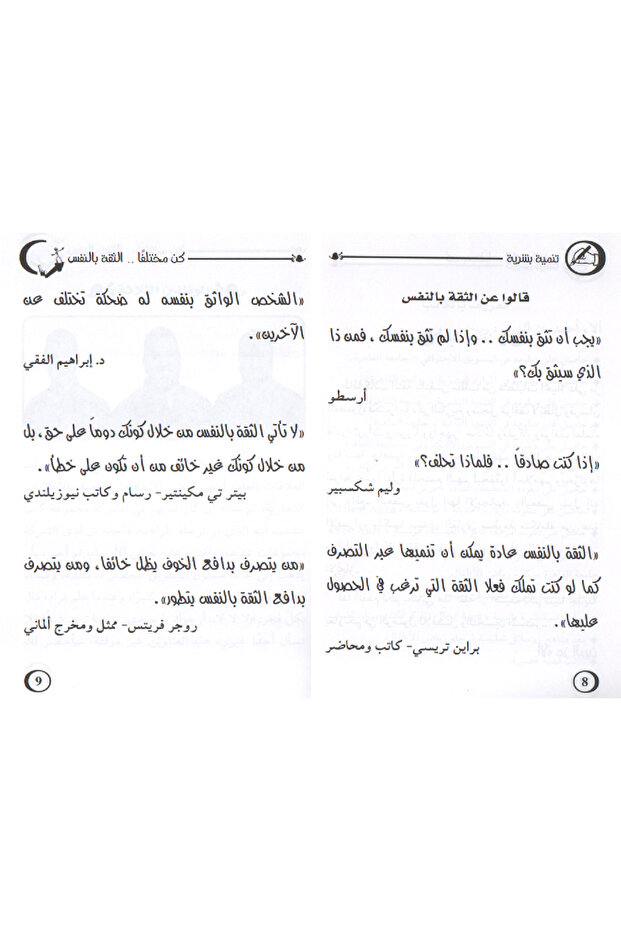 تنمية بشرية
قالوا عن الثقة بالنفس
«يجب أن تثق بنفسك .. وإذا لم تثق بنفسك ، فمن ذا
الذي سيثق بك؟»
أرسطو
«إذا كنت صادقاً .. فلماذا تحلف؟»
وليم شكسبير
«الثقة بالنفس عادة يمكن أن تنميها عبر التصرف
كما لو كنت تملك فعلا الثقة التي ترغب في الحصول
عليها».
براين تريسي- كاتب ومحاضر
8
كن مختلفًا .. الثقة بالنفس
«الشخص الواثق بنفسه له ضحكة تختلف عن
الآخرين».
د. إبراهيم الفقي
«لا تأتي الثقة بالنفس من خلال كونك دوماً على حق، بل
من خلال كونك غير خائف من أن تكون على خطأ».
بيتر تي مكينتير- رسام وكاتب نيوزيلندي
«من يتصرف بدافع الخوف يظل خائفا، ومن يتصرف
بدافع الثقة بالنفس يتطور».
روجر فريتس- ممثل ومخرج ألماني
9